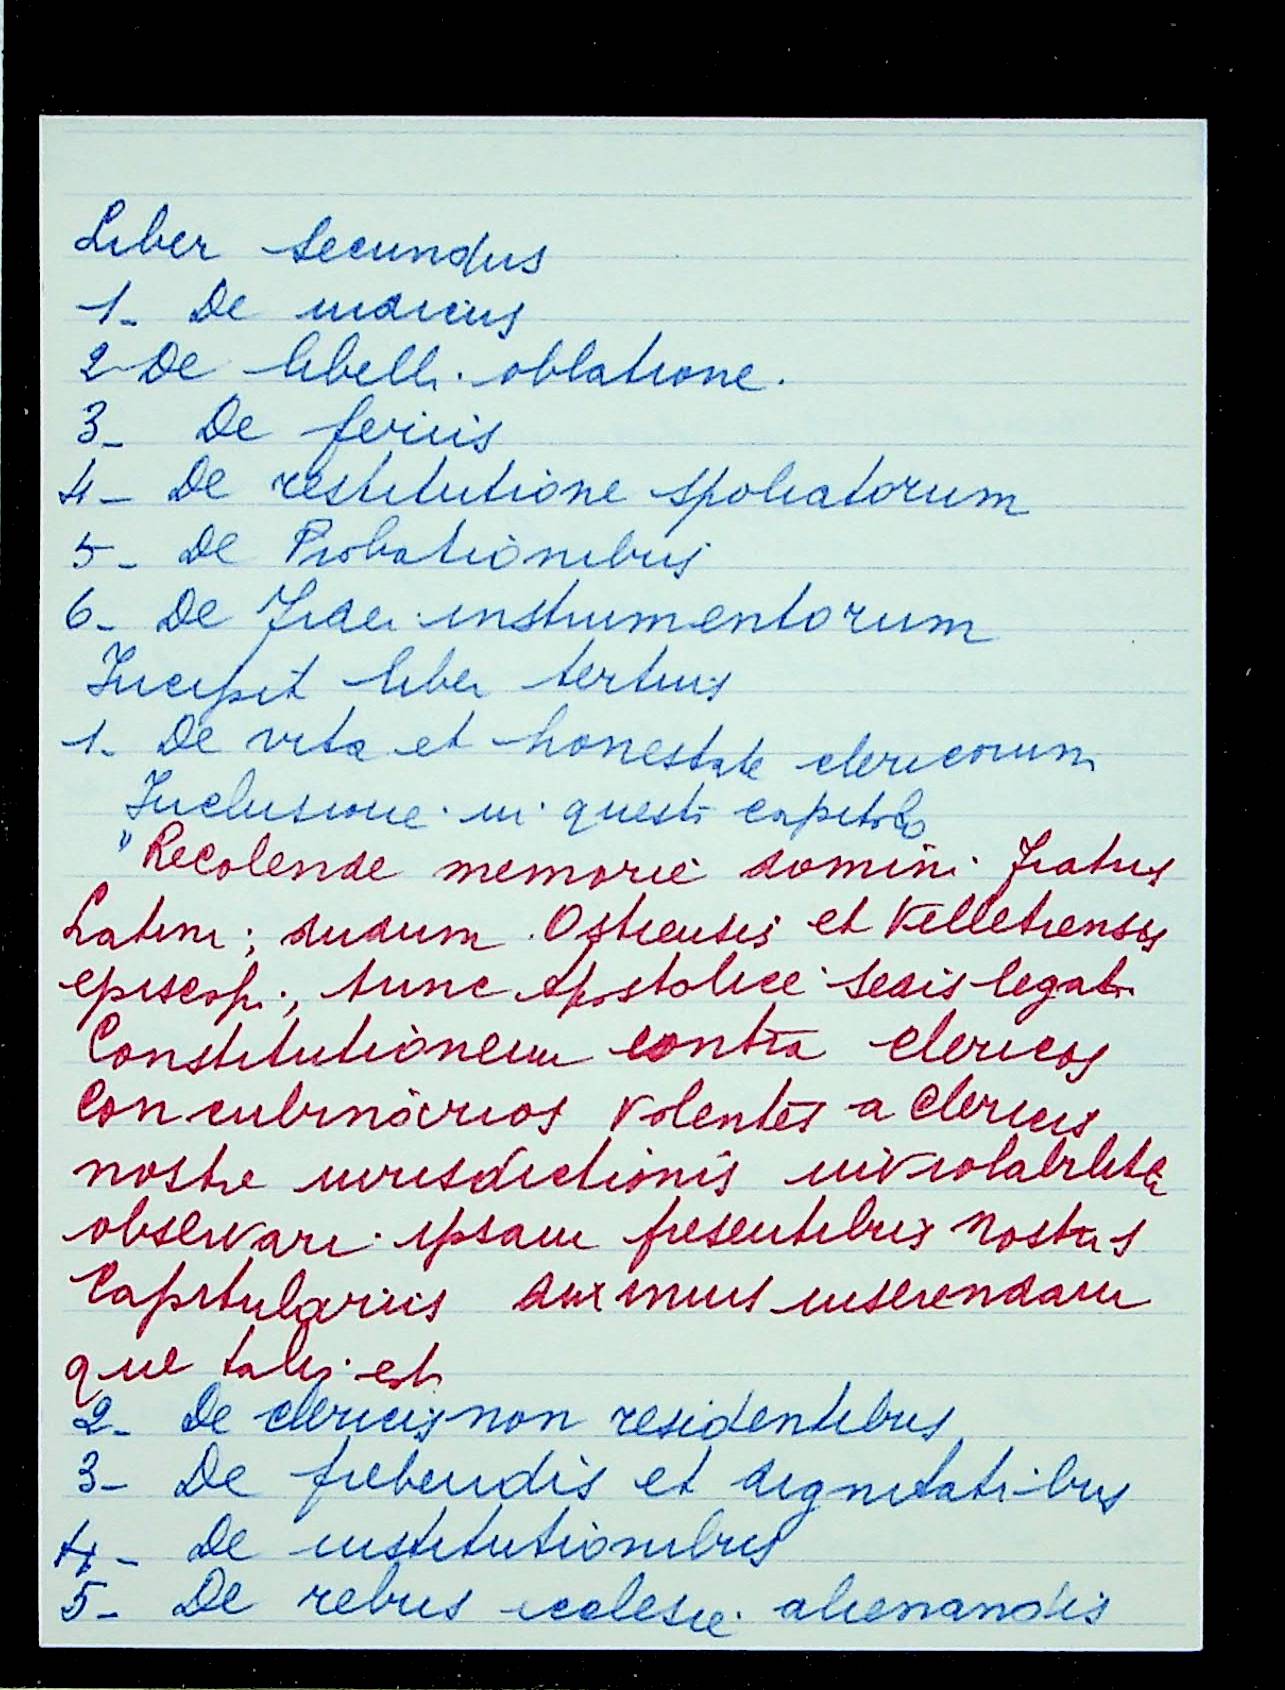 Liber secundus
1- De iudiciis
2- De libelli oblatione.
3- De feriis
4- De restitutione spoliatorum
5- De Probationibus
6- De Fide instrumentorum
Incipit liber tertius
1- De vita et honestate clericorum
Inclusione in questo capitolo
"Recolende memorie domini fratris
Latini; dudum Ostiensis et Velletrensis
episcopi; tunc Apostolice sedis legati
Constitutionem contra clericos
Concubinarios volentes a Clericis
nostre iurisdictionis inviolabiliter
observari ipsam presentibus nostris
Capitulariis duximus inserendam
que talis est
2- De clericis non residentibus
3- De prebendis et dignitatibus
4- De institutionibus
5- De rebus ecclesie alienandis